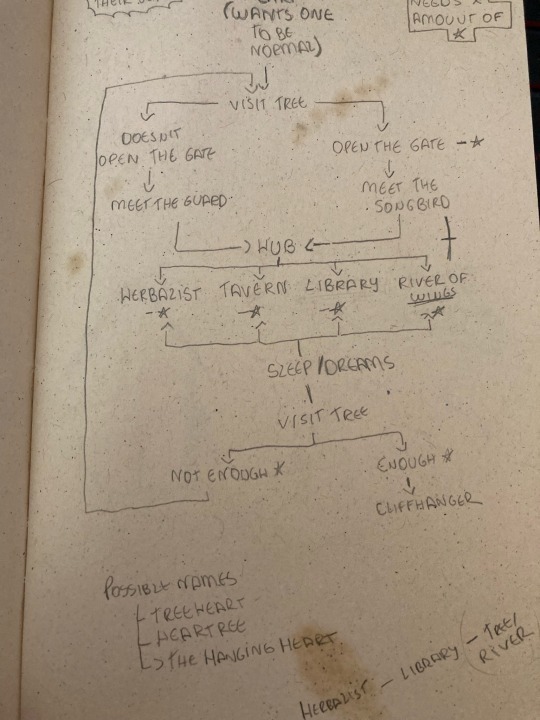 THEIR
NEEDS
AMOUUT OF
☆
(WANTS ONE
TO BE
NORMAL)
VISIT TREE
DOESN'T
OPEN THE GATE
OPEN THE GATE -☆
MEET THE GUARD
MEET THE
SONGBIRD
HUB
HERBALIST TAVERN LIBRARY RIVER OF
WINGS
-☆ -☆ -☆ -☆
SLEEP/DREAMS
VISIT TREE
NOT ENOUGH ☆ ENOUGH ☆
CLIFFHANGER
POSSIBLE NAMES
TREEHEART
HEARTREE
THE HANGING HEART
HERBALIST - LIBRARY - TREE/
RIVER